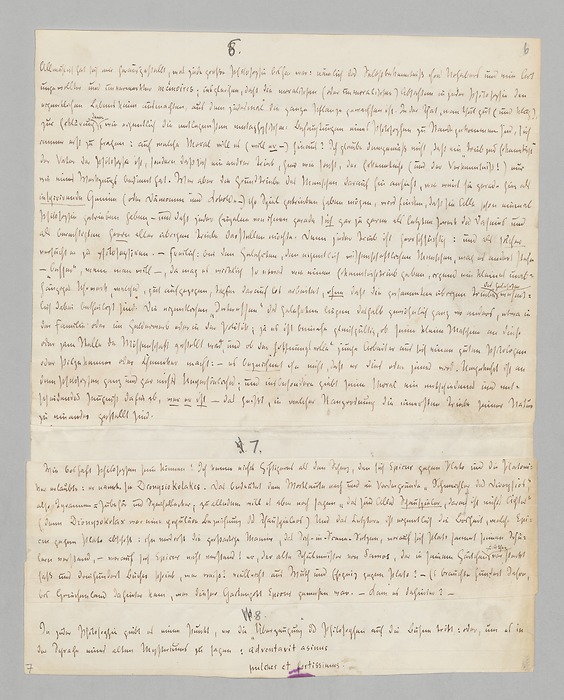 8.
6
Allmählich hat sich mir herausgestellt, was jede große Philosophie bisher war: nämlich das Selbstbekenntniß ihres Urhebers und eine Art
ungewollter und unvermerkter mémoires; insgleichen, daß die moralischen (oder unmoralischen) Absichten in jeder Philosophie den
eigentlichen Lebenskeim ausmachten, aus dem jedesmal die ganze Pflanze gewachsen ist. In der That, man thut gut (und klug),
zur Erklärung davon, wie eigentlich die entlegensten metaphysischen Behauptungen eines Philosophen zu Stande gekommen sind, sich
immer erst zu fragen: auf welche Moral will es (will er –) hinaus? Ich glaube demgemäß nicht, daß ein „Trieb zur Erkenntniß“
der Vater der Philosophie ist, sondern daß sich ein andrer Trieb, hier wie sonst, der Erkenntniß (und der Verkenntniß!) nur
wie eines Werkzeugs bedient hat. Wer aber die Grundtriebe des Menschen darauf hin ansieht, wie weit sie gerade hier als
inspirirende Genien (oder Dämonen und Kobolde –) ihr Spiel getrieben haben mögen, wird finden, daß sie Alle schon einmal
Philosophie getrieben haben – und daß jeder Einzelne von ihnen gerade sich gar zu gerne als letzten Zweck des Daseins und
als berechtigten Herrn aller übrigen Triebe darstellen möchte. Denn jeder Trieb ist herrschsüchtig: und als solcher
versucht er zu philosophiren. – Freilich: bei den Gelehrten, den eigentlich wissenschaftlichen Menschen, mag es anders stehn
– „besser“, wenn man will –, da mag es wirklich so Etwas wie einen Erkenntnißtrieb geben, irgend ein kleines unab-
hängiges Uhrwerk, welches, gut aufgezogen, tapfer darauf los arbeitet, ohne daß die gesammten übrigen Triebe des Gelehrten wesent-
lich dabei betheiligt sind. Die eigentlichen „Interessen“ des Gelehrten liegen deshalb gewöhnlich ganz wo anders, etwa in
der Familie oder im Gelderwerb oder in der Politik; ja es ist beinahe gleichgültig, ob seine kleine Maschine an diese
oder jene Stelle der Wissenschaft gestellt wird, und ob der „hoffnungsvolle“ junge Arbeiter aus sich einen guten Philologen
oder Pilzekenner oder Chemiker macht: – es bezeichnet ihn nicht, daß er dies oder jenes wird. Umgekehrt ist an
dem Philosophen ganz und gar nichts Unpersönliches; und insbesondere giebt seine Moral ein entschiedenes und ent-
scheidendes Zeugniß dafür ab, wer er ist – das heißt, in welcher Rangordnung die innersten Triebe seiner Natur
zu einander gestellt sind.
7.
Wie boshaft Philosophen sein können! Ich kenne nichts Giftigeres als den Scherz, den sich Epicur gegen Plato und die Platoni-
ker erlaubte: er nannte sie Dionysiokolakes. Das bedeutet dem Wortlaute nach und im Vordergrunde „Schmeichler des Dionysios“,
also Tyrannen-Zubehör und Speichellecker; zu alledem will es aber noch sagen „das sind Alles Schauspieler, daran ist nichts Ächtes“
(denn Dionysokolax war eine populäre Bezeichnung des Schauspielers). Und das Letztere ist eigentlich die Bosheit, welche Epi-
cur gegen Plato abschoß: ihn verdroß die großartige Manier, das Sich-in-Scene-Setzen, worauf sich Plato sammt seinen Schü-
lern verstand, – worauf sich Epicur nicht verstand! er, der alte Schulmeister von Samos, der in seinem Gärtchen zu Athen versteckt
saß und dreihundert Bücher schrieb, wer weiß? vielleicht aus Wuth und Ehrgeiz gegen Plato? – Es brauchte hundert Jahre,
bis Griechenland dahinter kam, wer dieser Gartengott Epicur gewesen war. – Kam es dahinter? –
8.
In jeder Philosophie giebt es einen Punkt, wo die „Überzeugung“ des Philosophen auf die Bühne tritt: oder, um es in
der Sprache eines alten Mysteriums zu sagen: adventavit asinus
pulcher et fortissimus.
7